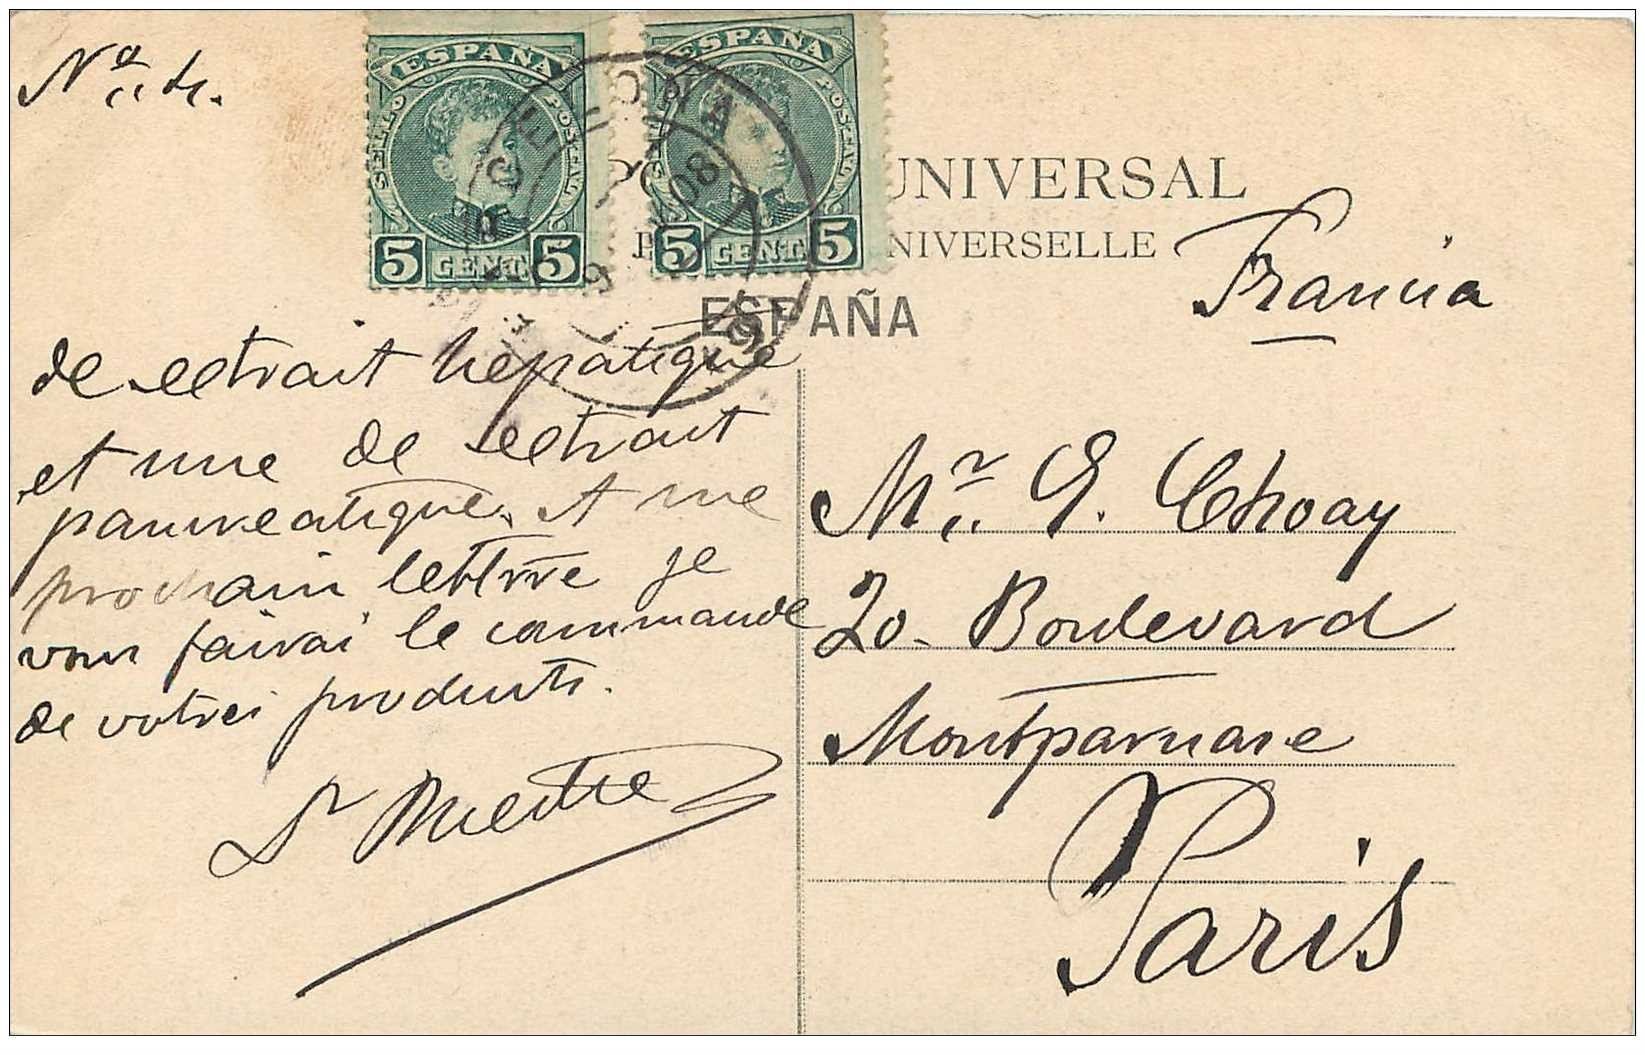 Nº 4.
ESPAÑA
SELLO POSTAL
5 CENT. 5
ESPAÑA
SELLO POSTAL
5 CENT. 5
CELONA
08
UNIVERSAL
NIVERSELLE
ESPAÑA
Francia
de extrait hepatique
et une de extrait
pancreatique. et me
prochain lettre je
vous fairai le commande
de votres produits.
Dr Mestre
Mr. E. Choay
20 - Boulevard
Montparnase
Paris